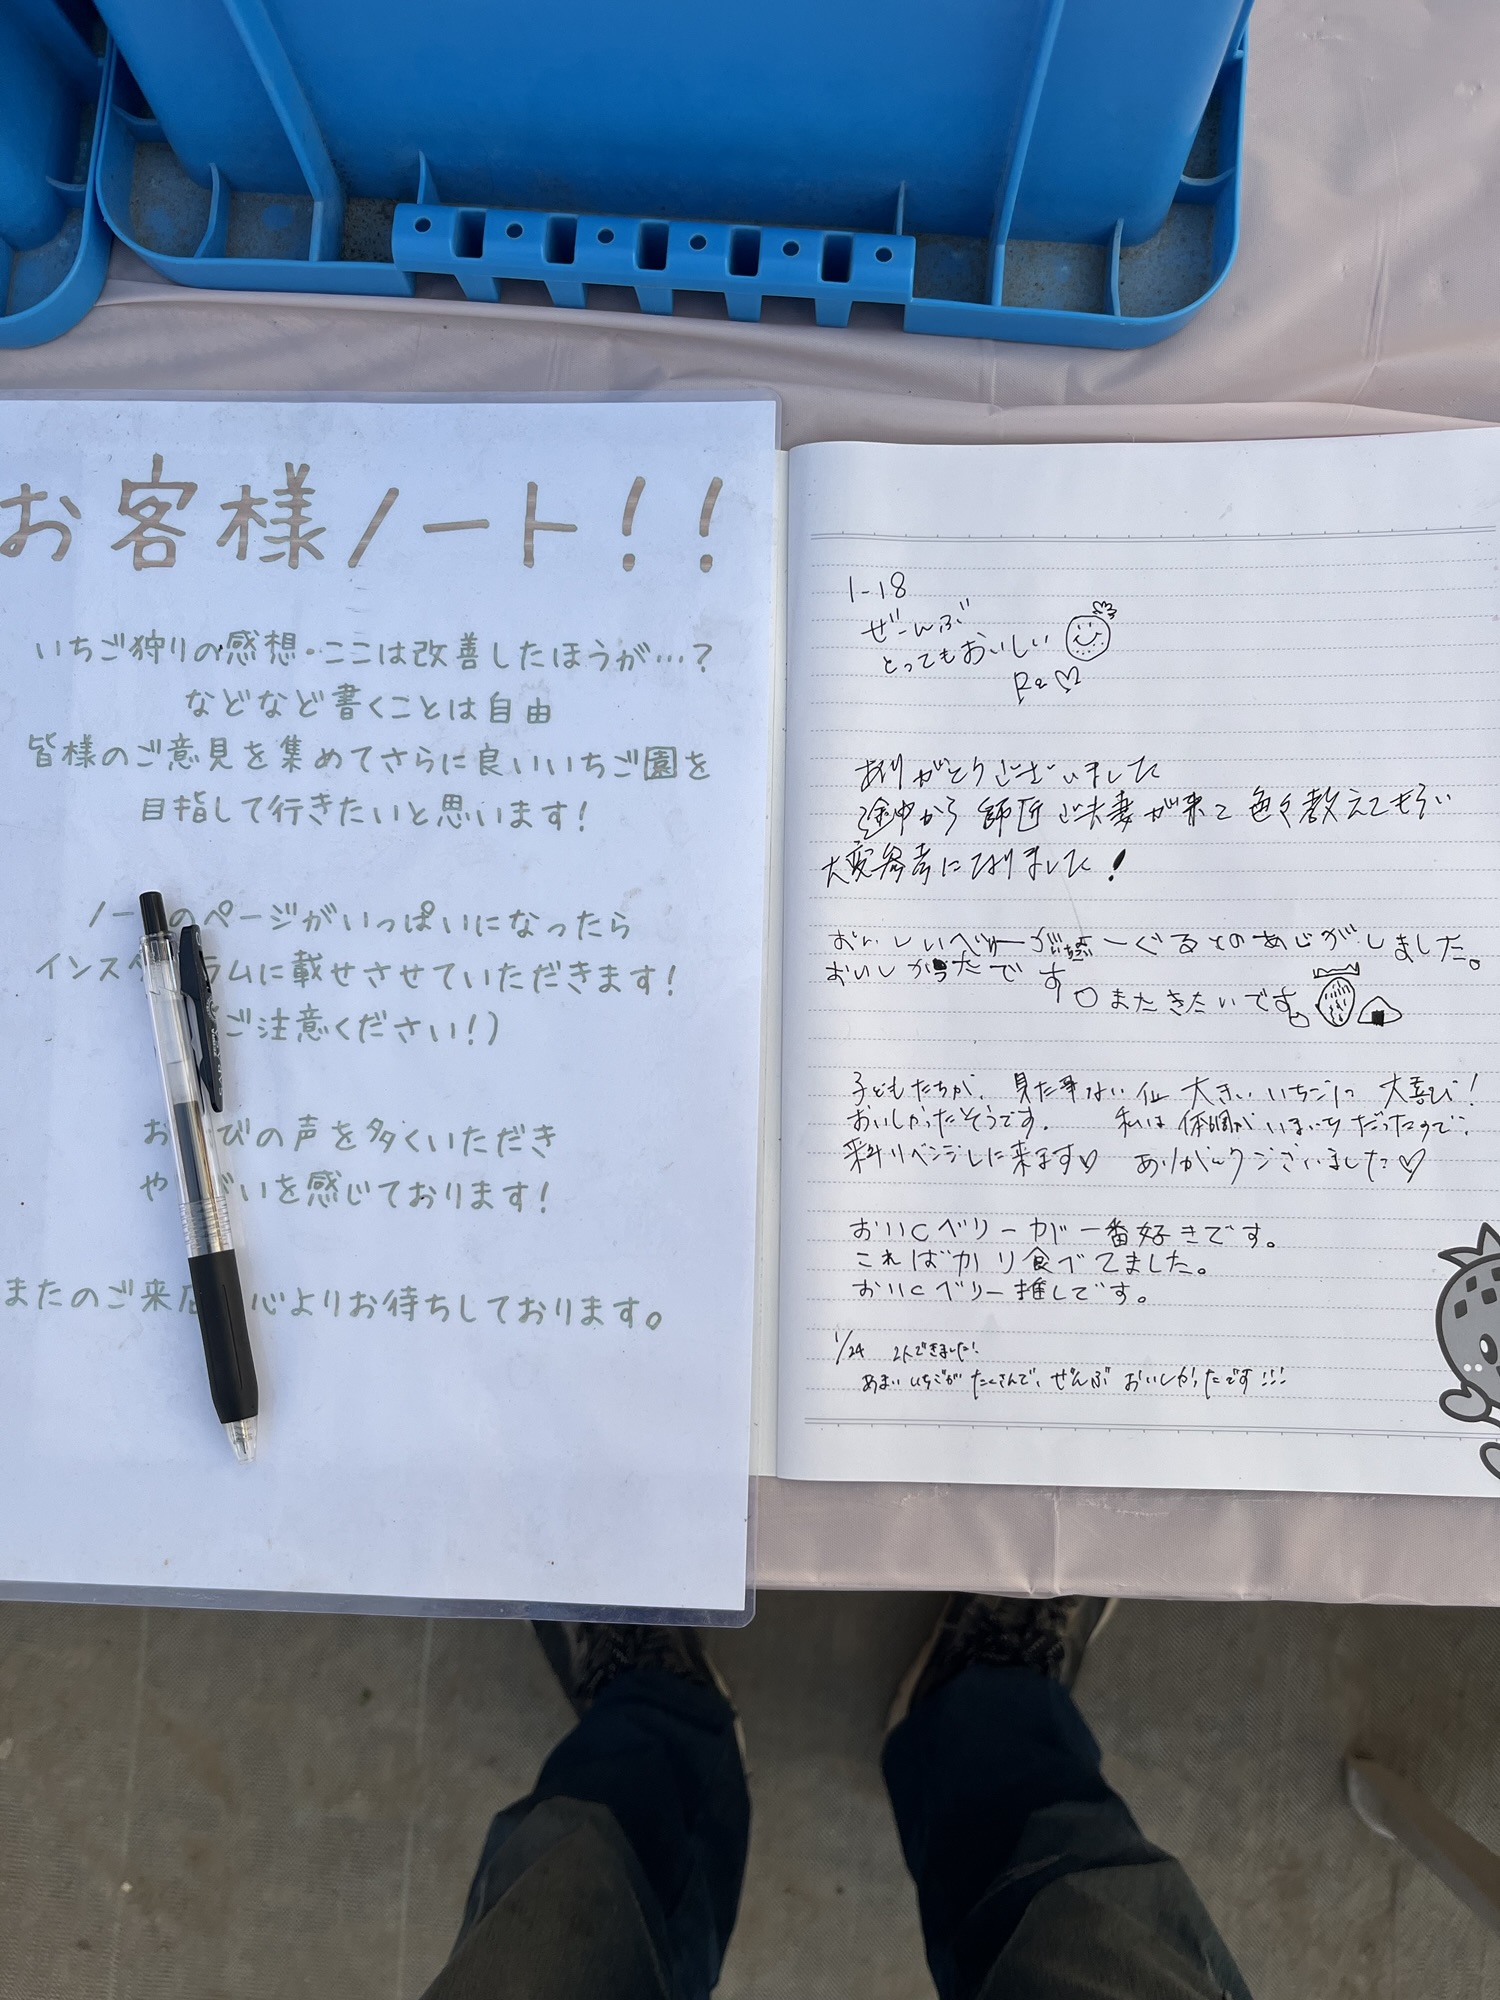 お客様ノート!!
いちご狩りの感想・ここは改善したほうが…?
などなど書くことは自由
皆様のご意見を集めてさらに良いいちご園を
目指して行きたいと思います!
ノー のページがいっぱいになったら
インス ラムに載せさせていただきます!
ご注意ください!)
お びの声を多くいただき
や いを感じております!
またのご来店 心よりお待ちしております。
1-18
ぜーんぶ
とってもおいしい
ありがとうございました
途中から師匠ご夫妻が来て色々教えてもらい
大変参考になりました!
おいしいベリーが 一ぐるとのあじがしました。
おいしかったです
またきたいです。
子どもたちが、見た事ない位大きいいちごに大喜び!
おいしかったそうです。 私は体調がいまいちだったので、
来年リベンジしに来ます♡ ありがとうございました♡
おいCベリーが一番好きです。
こればかり食べてました。
おいCベリー推しです。
1/24 2人できました!
あまいいちごがたくさんで、ぜんぶおいしかったです!!!